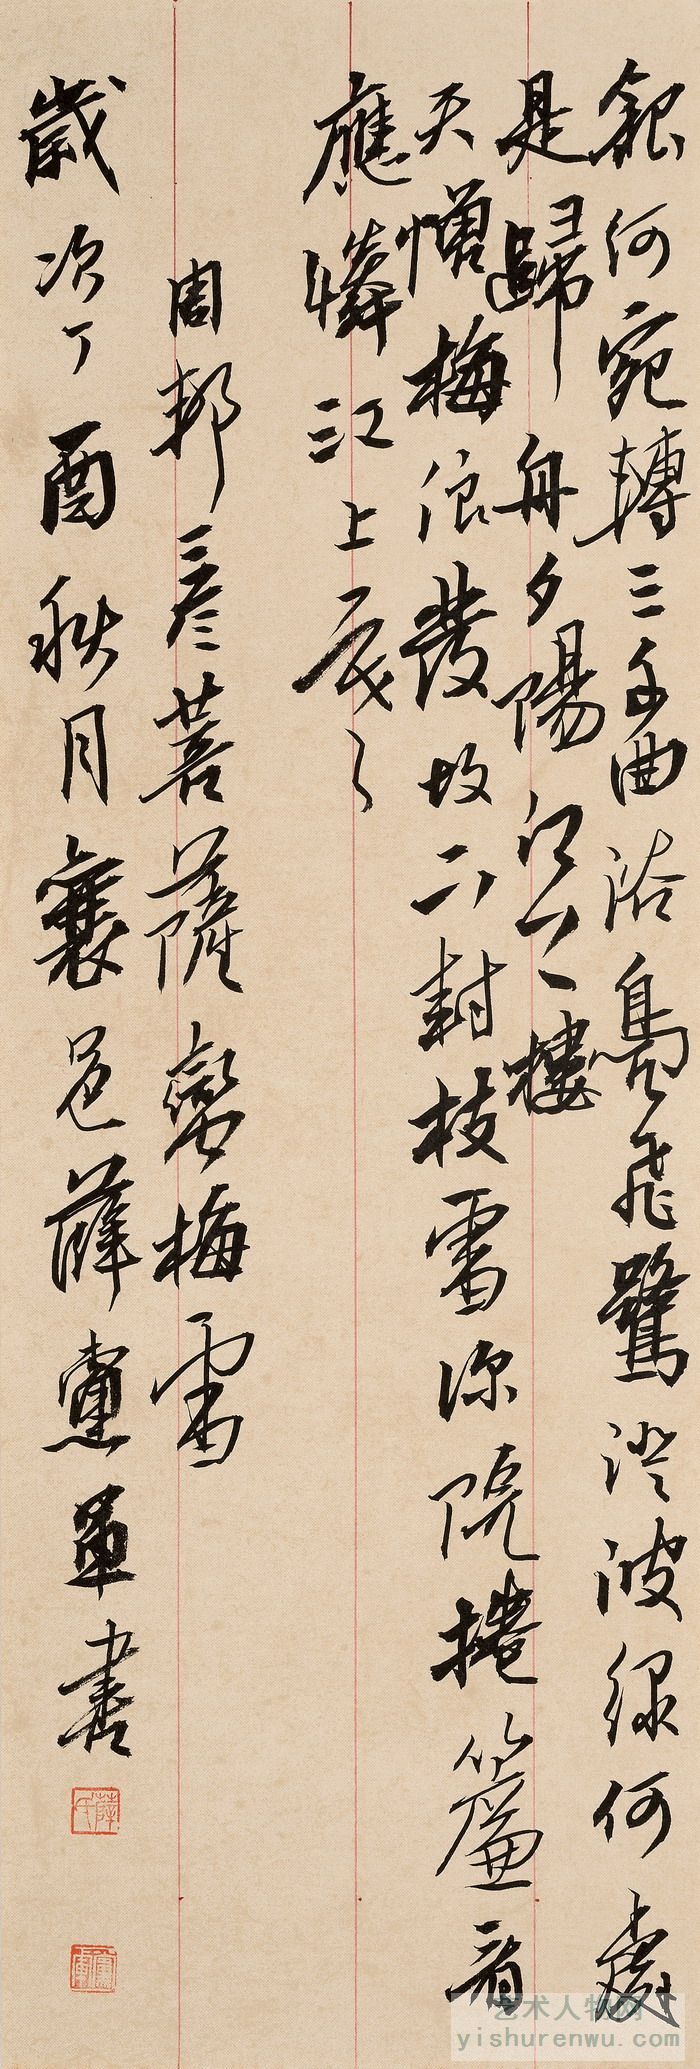 銀河宛轉三千曲浴鳧飛鷺澄波綠何處
是歸舟夕陽江上樓
天憎梅浪發故下封枝雪深院捲簾看
應憐江上寒
周邦彥菩薩蠻梅雪
歲次丁酉秋月襄邑薛憲軍書
薛氏
憲軍
艺术人物网
yishurenwu.com